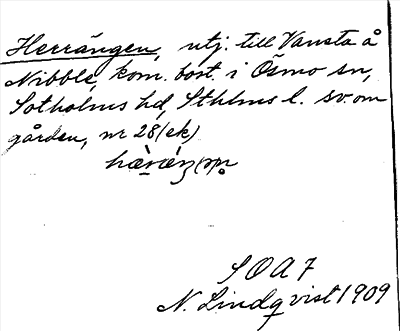 Herrängen, utj. till Vansta å
Nibble, kom. bost. i Ösmo sn,
Sotholms hd, Sthlms l. sv. om
gården, nr 28 (ek)
SOA 7
N. Lindqvist 1909